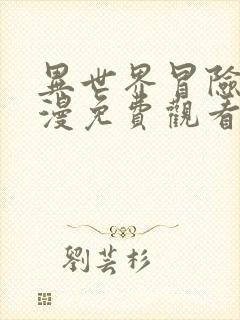 異世界冒險
漫免費觀看
劉芸杉